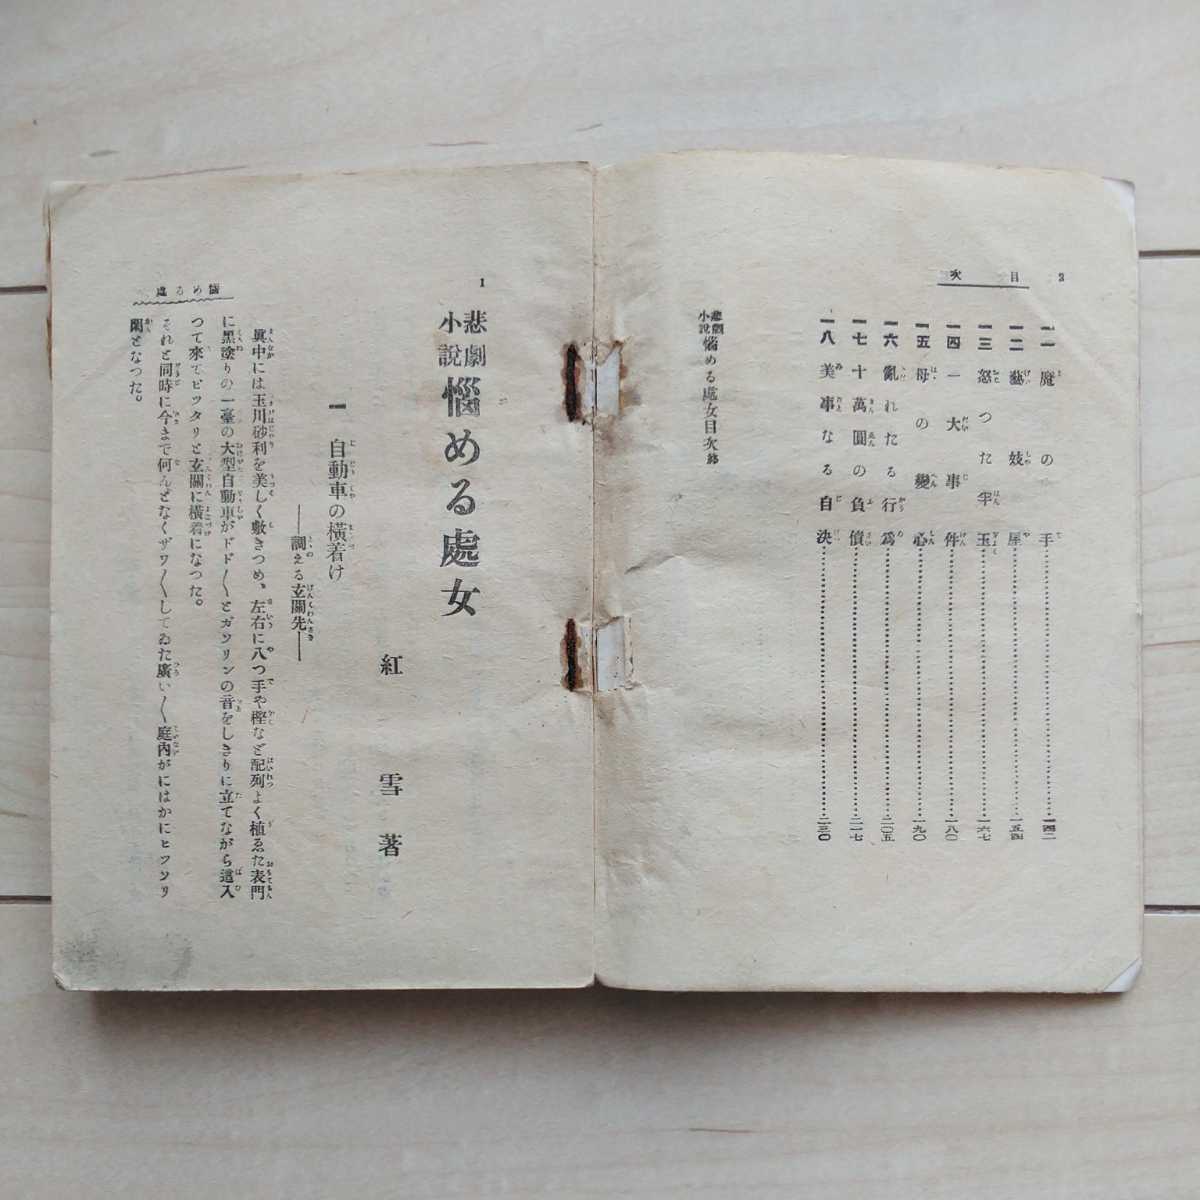 目次
3
一一 魔の手……一四二
一二 藝妓屋……一五四
一三 怒つた牢玉……一六七
一四 一大事件……一八〇
一五 母の變心……一九〇
一六 亂れたる行爲……二〇五
一七 十萬圓の負債……二一七
一八 美事なる自決……二三〇
悲劇小說 惱める處女目次 終
1
悲劇小說 惱める處女
紅雪著
一 自動車の橫着け
――調える玄關先――
眞中には玉川砂利を美しく敷きつめ、左右に八つ手や樫など配列よく植ゑた表門
に黑塗りの一臺の大型自動車がドド〳〵とガソリンの音をしきりに立てながら這入
つて來てピッタリと玄關に橫着になつた。
それと同時に今まで何んとなくザワ〳〵してゐた廣い〳〵庭內がにはかにヒッソリ
閑となつた。
惱める處